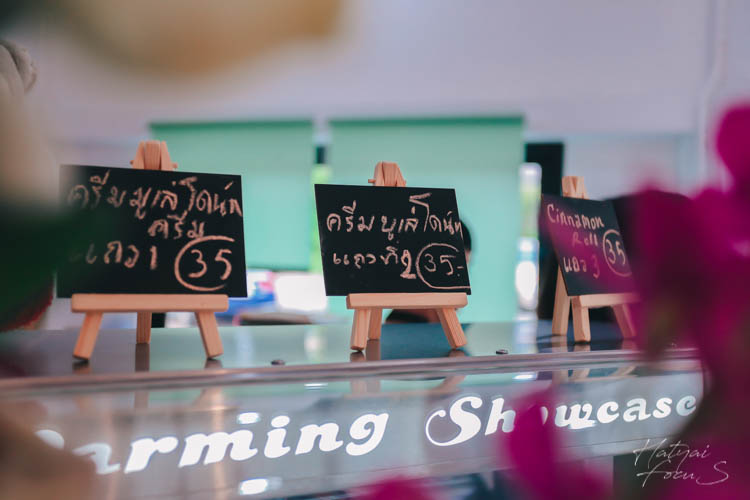 ครีมบูเล่โดนัท
ครีม
แถว 1 35
ครีมบูเล่โดนัท
แถวที่ 2 35.-
Cinnamon
Roll
แถว 3 35
arming Showcase
Hatyai
Focus